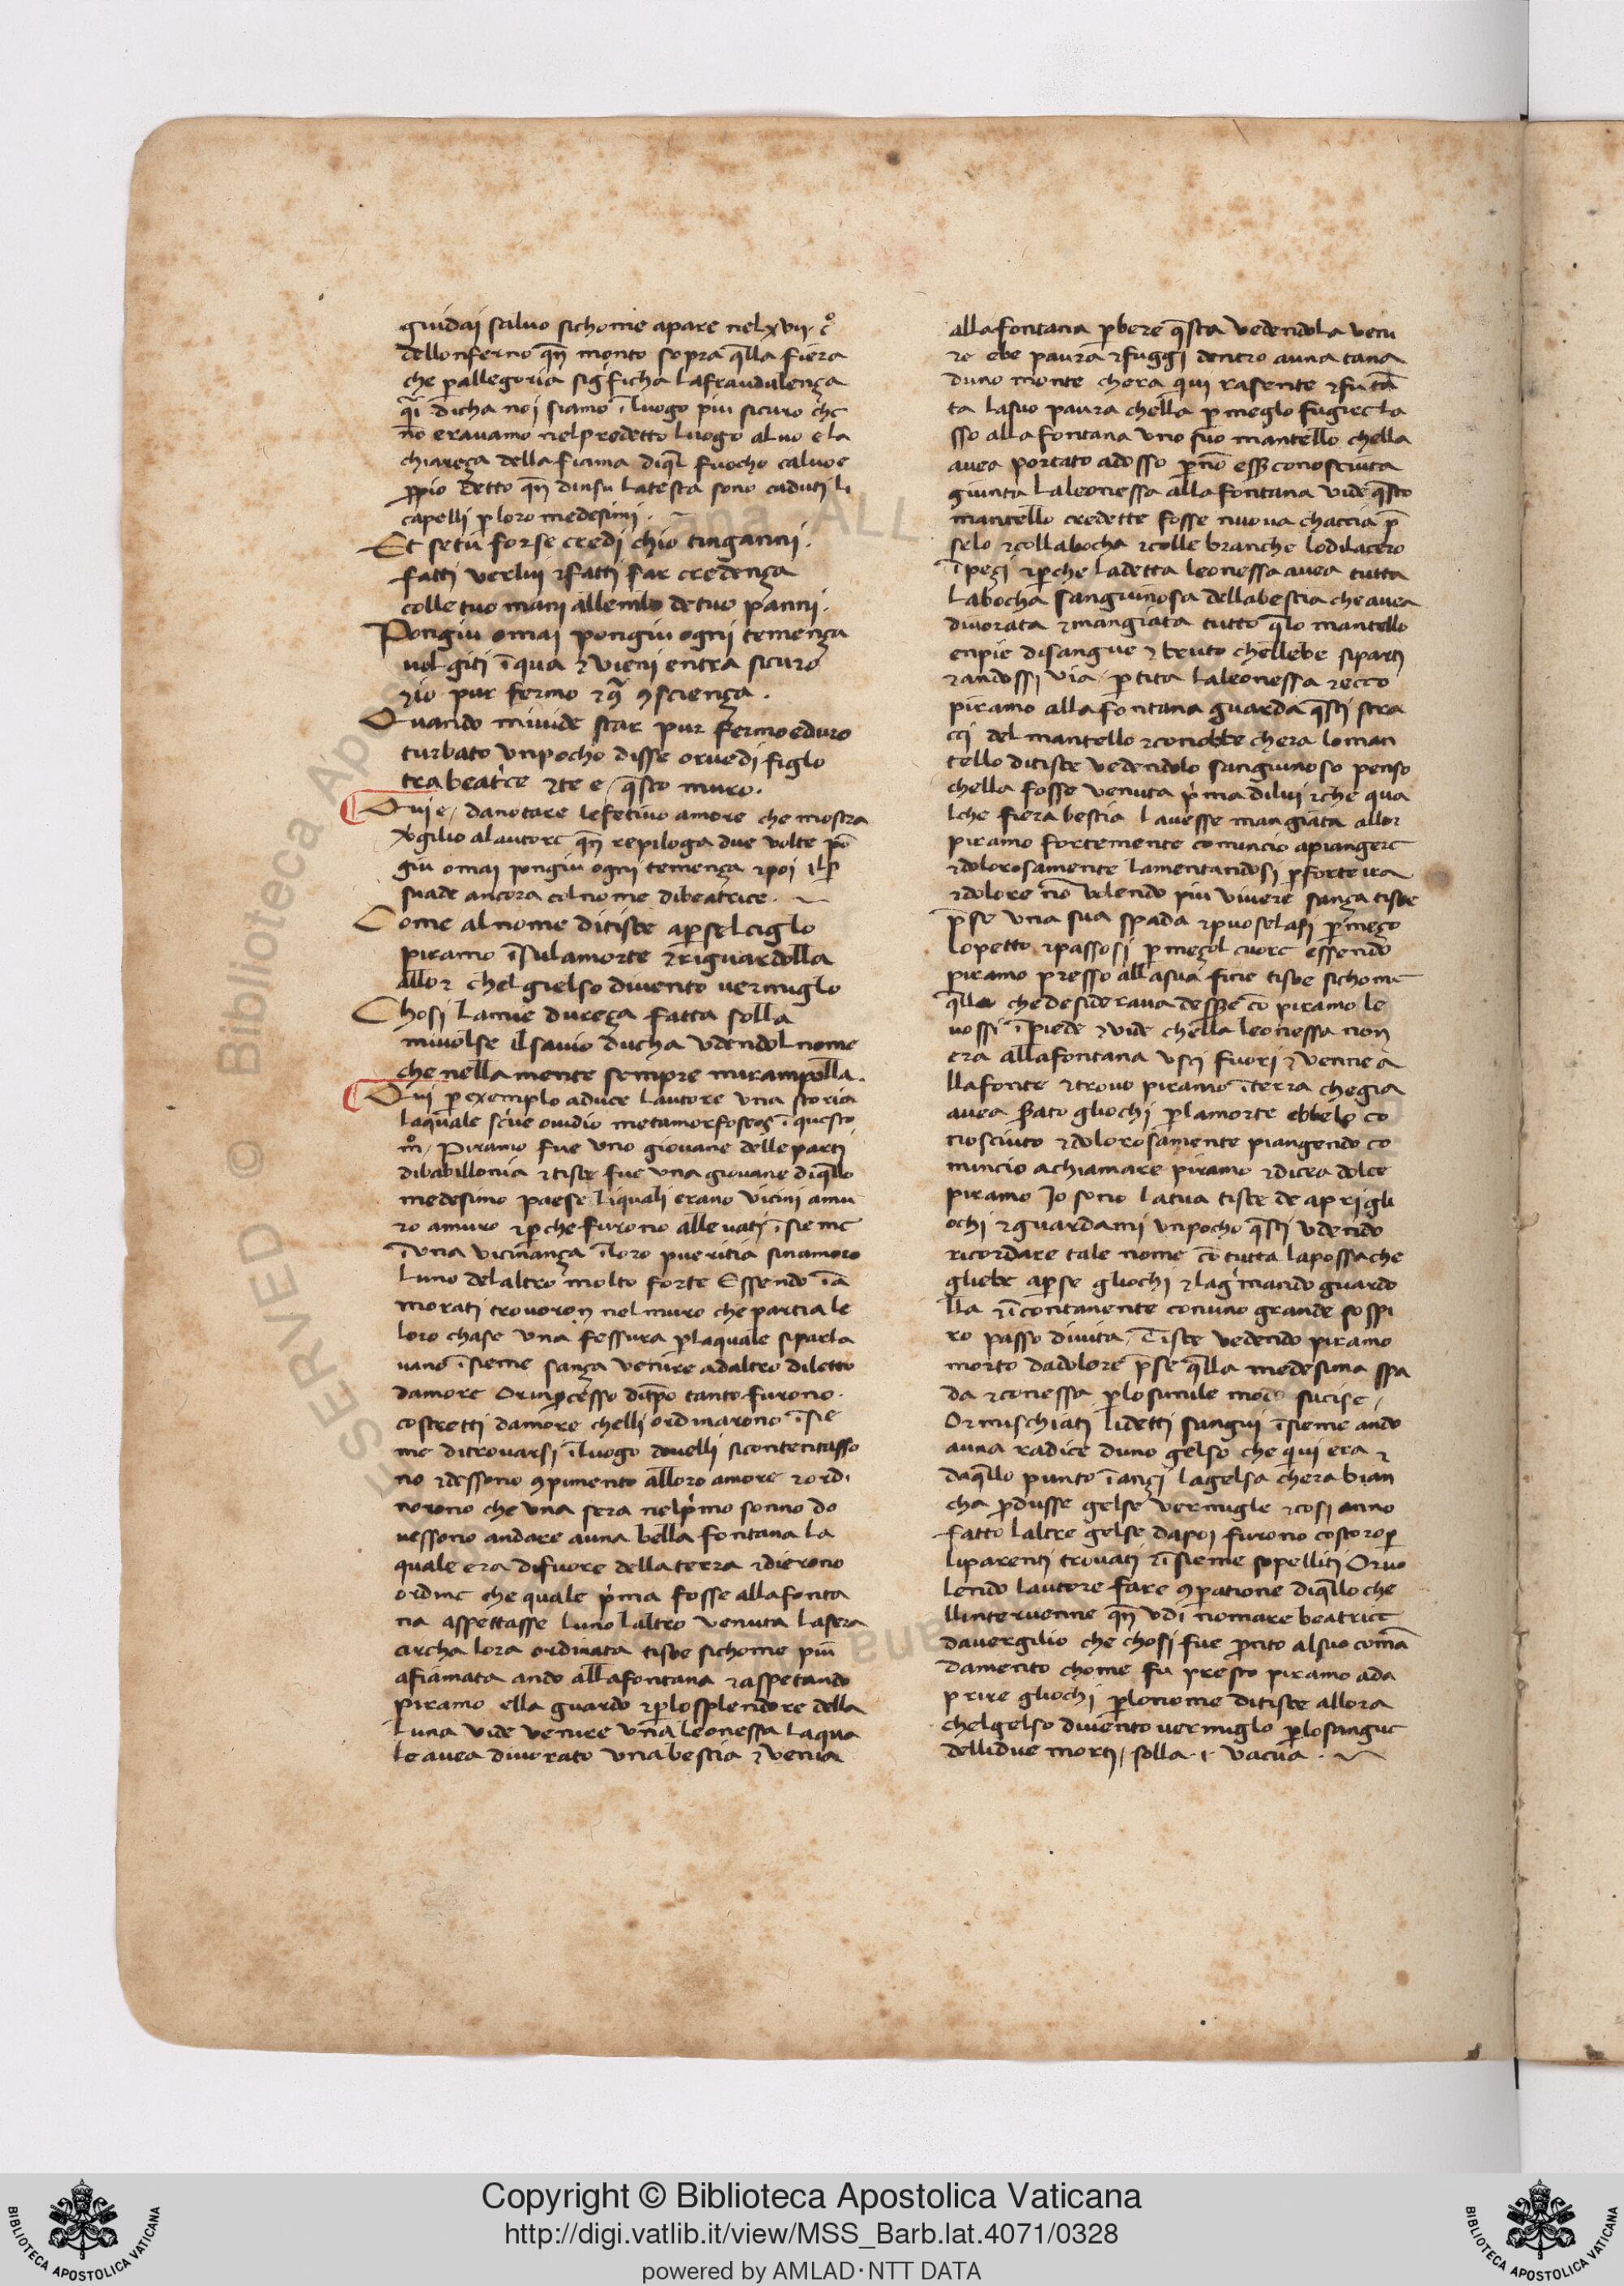 guidai saluo sichome apare nel xvii c̊
dellonferno qn̄ monto sopra q̄lla fiera
che p̱allegoria sigficha lafraudulença
qͥ dicha noi siamo ī luogo piu sicuro che
nō eravamo nelpredetto luogo aluo e la
chiareça della fiama diq̄l fuocho caluo e
ꝓpio detto qn̄ dinsu latesta sono caduti li
capelli p̱ loro medesimi .
Et setu forse credi chio tinganni .
fatti verlui ⁊fatti far credença
colle tuo mani allembo detuo panni .
Pongiu omai pongiu ogni temença
volgiti īqua ⁊ vieni entra sicuro
⁊io pur fermo ⁊ ꝯsciença .
Quando mivide star pur fermo eduro
turbato vnpocho disse orvedi figlo
tra beatͥce ⁊te e q̄sto muro .
Qui e / danotare lefetivo amore che mostra
Vͦgilio alautore qn̄ repiloga due volte pō
giu omai pongiu ogni temença ⁊poi il p̱
suade ancora colnome dibeatrice .
Come alnome ditisbe ap̱sel ciglo
piramo īsulamorte ⁊riguardolla
allor chel gielso divento vermiglo
Chosi lamie dureça fatta solla
mivolse il savio ducha vdendol nome
che nella mente sempre mirampolla .
Qui p̱ exemplo aduce lautore una storia
laquale scͥve ovidio metamorfoseos ī questo
m̊ . Piramo fue vno giovane delle parti
dibabillonia ⁊tisbe fue una giovane diq̄llo
medesimo paese liquali erano vicini amu
ro amuro ⁊p̱che furono allevati īsieme
īvna vicinança īloro pueritia sinamoro
luno delaltro molto forte Essendo īa
morati trovoron nel muro che partia le
loro chase vna fessura p̱laquale siparla
vano īsieme sança venire adaltro diletto
damore Orinp̱cesso dit̄po tanto furono .
costretti damore chelli ordinarono īsie
me ditrovarsi īluogo dovelli sicontentasso
no ⁊dessono ꝯpimento alloro amore ⁊ordi
norono che vna sera nelpͥmo sonno do
vessono andare auna bella fontana la
quale era difuore della terra ⁊dierono
ordine che quale pͥma fosse alla fonta
na aspettasse luno laltro venuta lasera
circha lora ordinata tisbe sichome piu
afiamata ando allafontana ⁊aspetando
piramo ella guardo ⁊p̱losplendore della
luna vide venire vna leonessa laqua
le avea divorato vnabestia ⁊ venia
alla fontana p̱bere q̄sta vedendola veni
re ebe paura ⁊fuggi dentro auna tana
duno monte chera quj rasente ⁊fu tā
ta lasuo paura chella p̱ meglo fugire la
sso alla fontana vno suo mantello chella
avea portato adosso p̱nō essere conosciuta
giunta laleonessa alla fontana vide q̄sto
mantello credette fosse nuova chaccia p̄
selo ⁊collabocha ⁊colle branche lodilacero
īpeçi ⁊p̱che ladetta leonessa avea tutta
labocha sanguinosa dellabestia che avea
divorata ⁊mangiata tutto q̄lo mantello
enpie disangue ⁊ bruto chellebe siparti
⁊andossi via . p̱tita laleonessa ⁊ecco
piramo alla fontana guarda q̄sti stra
cci del mantello ⁊conobbe chera loman
tello ditisbe vedendolo sanguinoso penso
chella fosse venuta pͥma dilui ⁊che qua
lche fiera bestia lavesse mangiata allor
piramo fortemente comincio apiangere
⁊dolorosamente lamentandosi p̱forte ira
⁊dolore nō volendo piu vivere sança tisbe
p̄se una sua spada ⁊puoselasi p̱ meço
lopetto ⁊passosi p̱ meçol cuore essendo
piramo presso allasua fine tisbe sichome
q̄lla che desiderava dessere cō piramo le
vossi īpiede ⁊ vide chella leonessa non
era allafontana vsci fuori ⁊ venne a
llafonte ⁊trovo piramo īterra chegia
avea serato gliochi p̱lamorte ebbelo co
nosciuto ⁊dolorosamente piangendo co
mincio achiamare piramo ⁊dicea dolce
piramo Io sono latua tisbe de aprigli
ochi ⁊guardami vnpocho q̄sti vdendo
ricordare tale nome cō tutta lapossa che
gliebe ap̱se gliochi ⁊lagͥmando guardo
lla ⁊īcontanente conuno grande sospi
ro passo divita . Tisbe vedendo piramo
morto dadolore p̄se q̄lla medesima spa
da ⁊conessa p̱losimile modo sucise /
Ormischiati lidetti sangui īsieme ando
auna radice duno gelso che quj era ⁊
daq̄llo punto īançi lagelsa chera bian
cha ꝓdusse gelse vermigle ⁊cosi anno
fatto laltre gelse dapoi furono costoro p̱
liparenti trovati ⁊īsieme sopelliti Orvo
lendo lautore fare ꝯpatione diq̄llo che
llintervenne qn̄ vdi nomare beatrice
davergilio che chosi fue prōto alsuo comā
damento chome fu presto piramo ada
prire gliochi p̱lonome ditisbe allora
chelgelso divento vermiglo p̱losangue
dellidue morti / solla .i. vacua .
Copyright © Biblioteca Apostolica Vaticana
http://digi.vatlib.it/view/MSS_Barb.lat.4071/0328
powered by AMLAD·NTT DATA